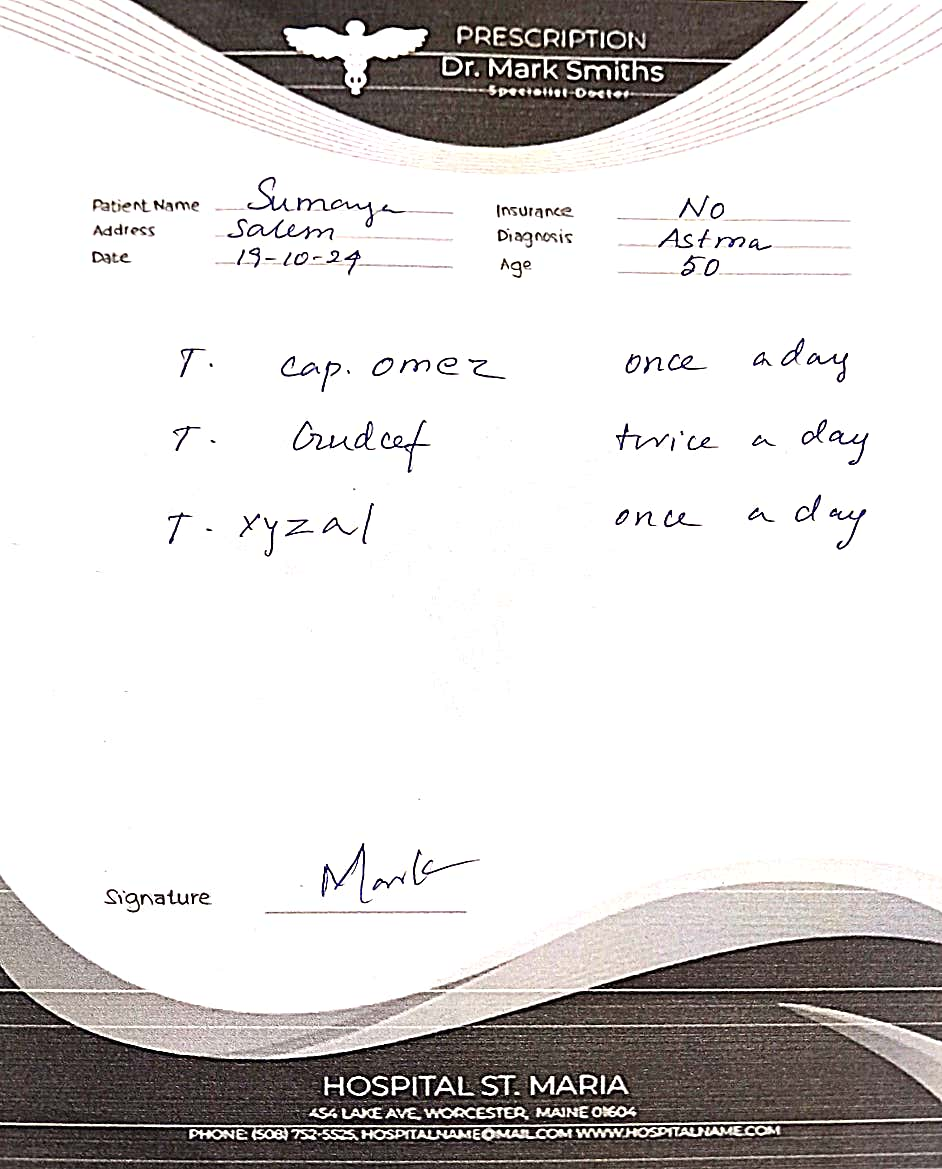 PRESCRIPTION
Dr. Mark Smiths
Specialist Doctor
Patient Name Sumaya Insurance No
Address Salem Diagnosis Astma
Date 19-10-24 Age 50
T. cap. omez once a day
T. twice a day
T. xyzal once a day
Signature Mark
HOSPITAL ST. MARIA
454 LAKE AVE, WORCESTER, MAINE 01604
PHONE: (508) 752-5525, HOSPITALNAME@MAIL.COM WWW.HOSPITALNAME.COM